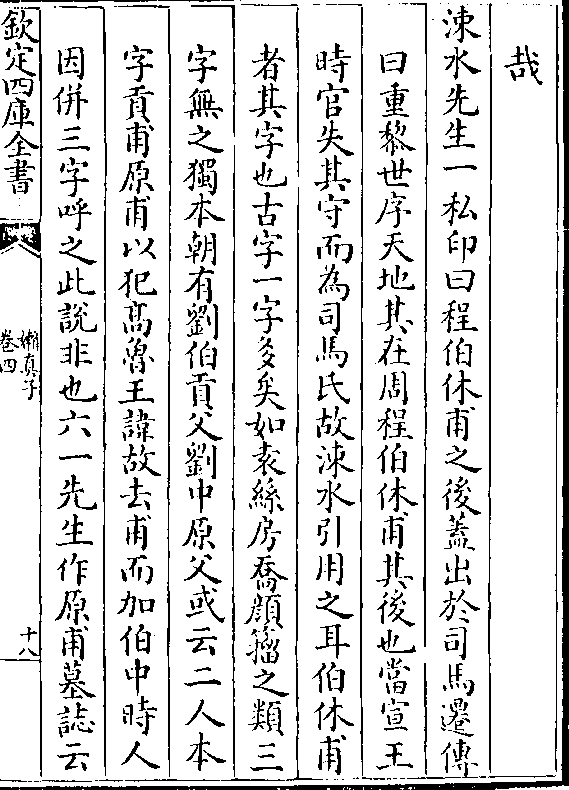 哉
涑水先生一私印曰程伯休甫之後蓋出於司馬遷傳
曰重黎世序天地其在周程伯休甫其後也當宣王
時官失其守而為司馬氏故涑水引用之耳伯休甫
者其字也古字一字多矣如袁絲房喬顔籀之類三
字無之獨本朝有劉伯貢父劉中原父或云二人本
字貢甫原甫以犯髙魯王諱故去甫而加伯中時人
因併三字呼之此說非也六一先生作原甫墓誌云
欽定四庫全書
懶真子
卷四
十八